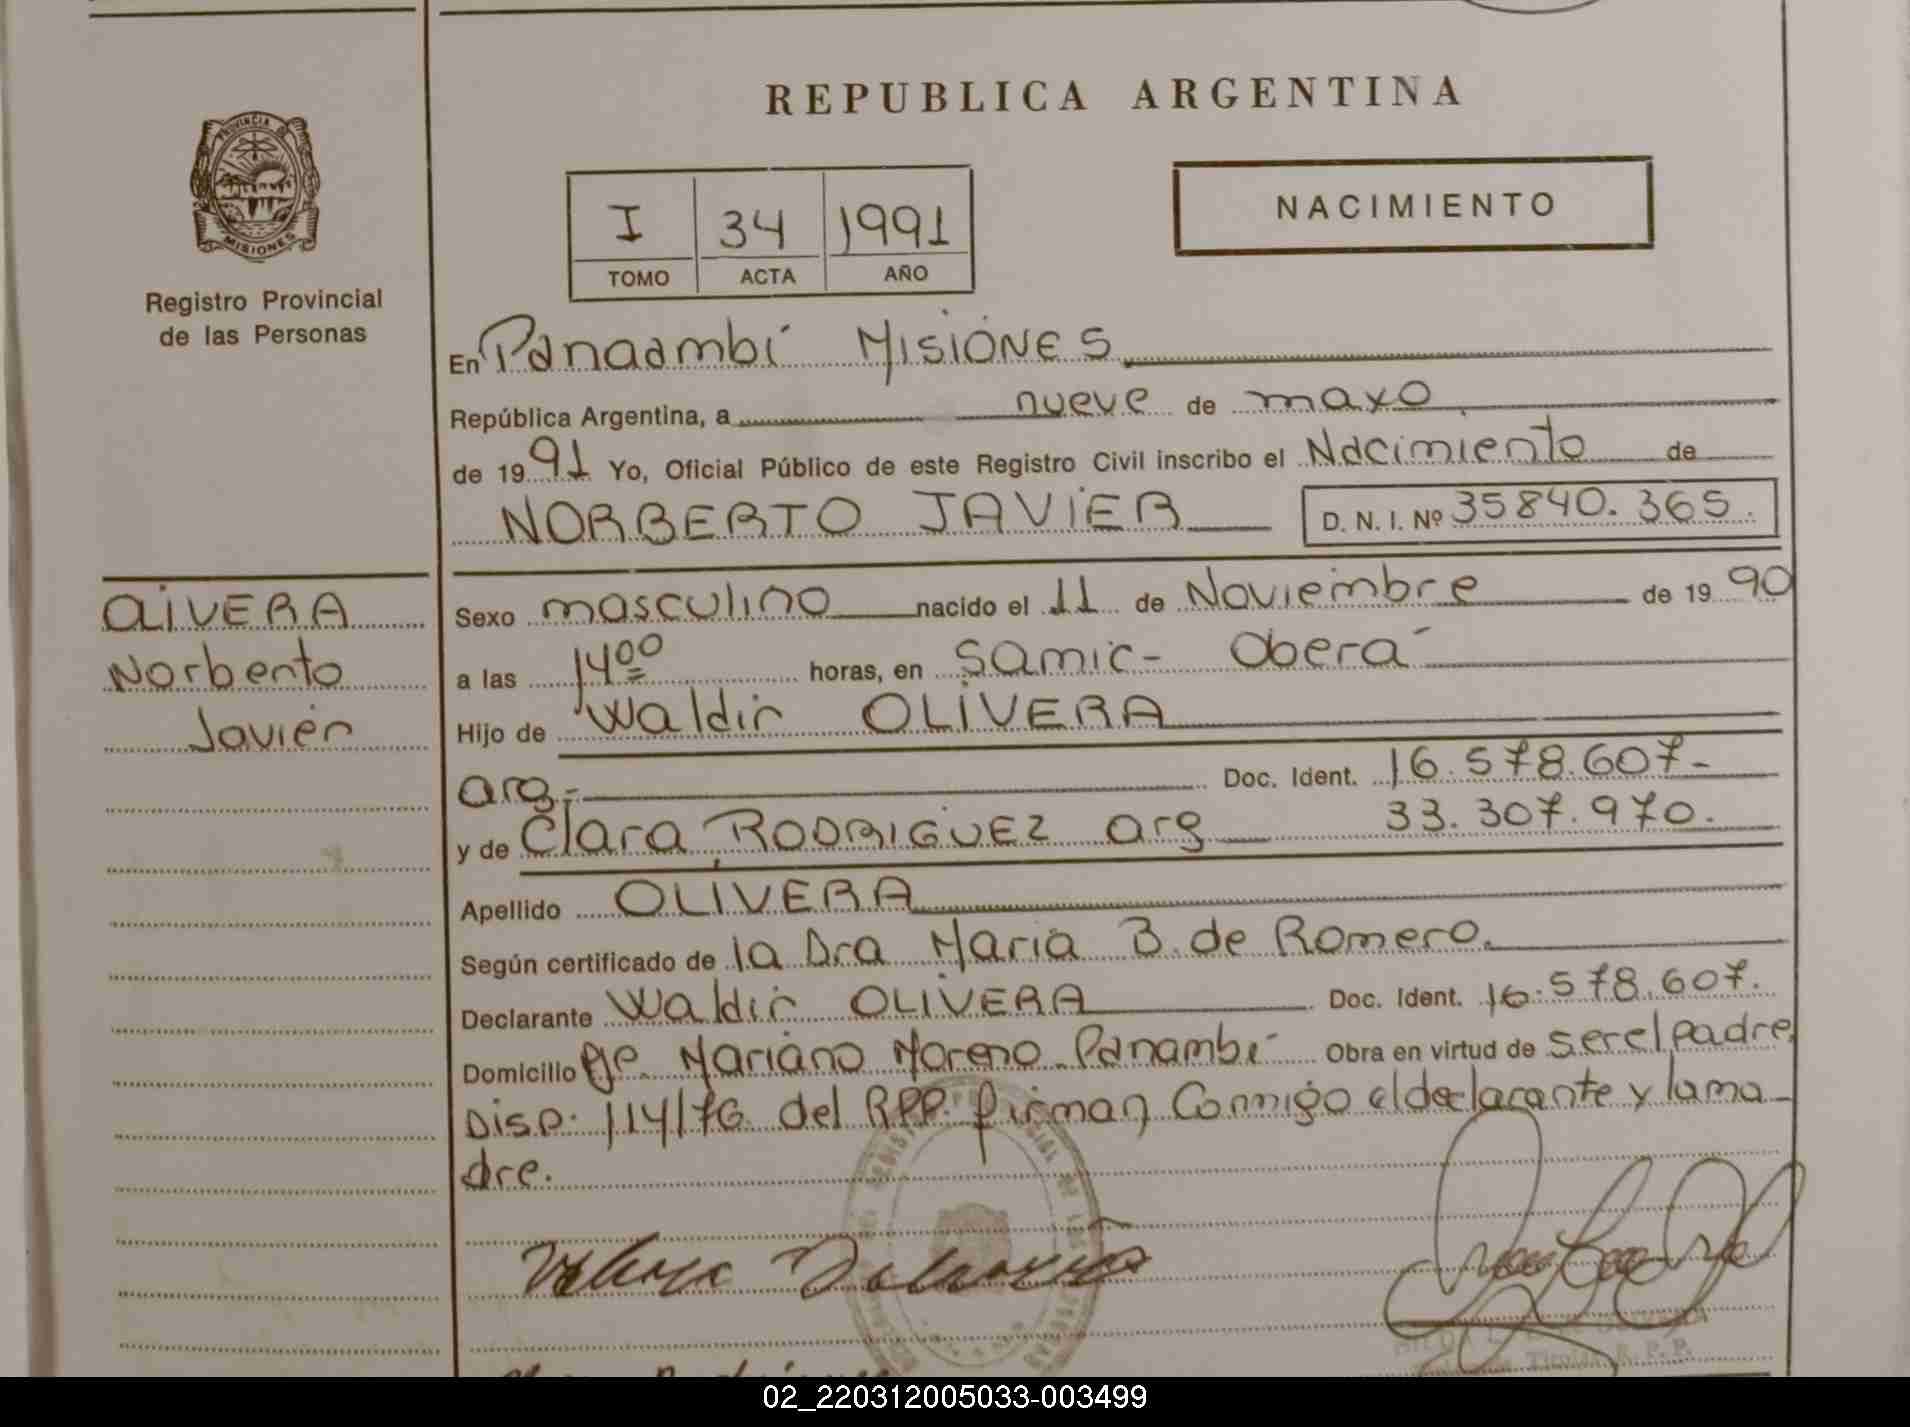 REPUBLICA ARGENTINA
PROVINCIA DE
MISIONES
Registro Provincial
de las Personas
NACIMIENTO
I 34 1991
TOMO ACTA AÑO
En Panaambí MISIONES
República Argentina, a nueve de mayo
de 1991 Yo, Oficial Público de este Registro Civil inscribo el Nacimiento de
NORBERTO JAVIER D. N. I. Nº 35840.365.
OLIVERA
Norberto
Javier
Sexo masculino nacido el 11 de Noviembre de 1990
a las 14⁰⁰ horas, en Samic- Oberá
Hijo de Waldir OLIVERA
arg.- Doc. Ident. 16.578.607-
y de Clara RODRIGUEZ arg 33.307.970.
Apellido OLIVERA
Según certificado de la Dra Maria B. de Romero.
Declarante Waldir OLIVERA Doc. Ident. 16.578.607.
Domicilio Pje. Mariano Moreno-Panambí Obra en virtud de ser el padre.
Disp: 114/76 del RPP. firman Conmigo el declarante y la ma-
dre.
Titular R. P. P.
02_220312005033-003499